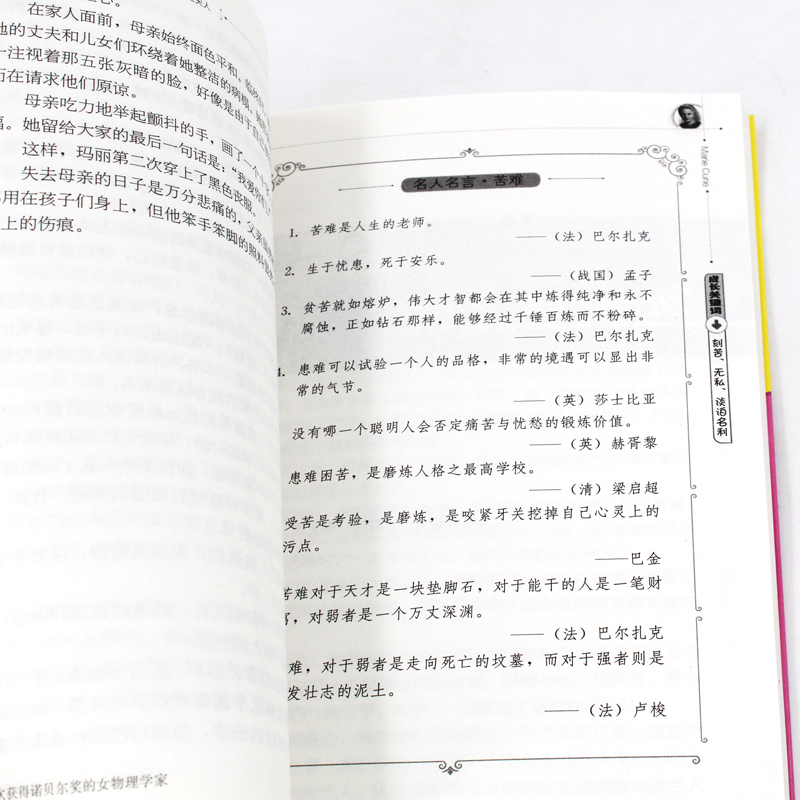 在家人面前，母亲始终面色平和。临终
她的丈夫和儿女们环绕着她整洁的病榻，
一注视着那五张灰暗的脸，好像是由于自
而在请求他们原谅。
母亲吃力地举起颤抖的手，画了一个
福。她留给大家的最后一句话是：“我爱你们
这样，玛丽第二次穿上了黑色丧服。
失去母亲的日子是万分悲痛的，父亲
用在孩子们身上，但他笨手笨脚的照料
上的伤痕。
次获得诺贝尔奖的女物理学家
Marie Curie
名人名言·苦难
1. 苦难是人生的老师。
——（法）巴尔扎克
2. 生于忧患，死于安乐。
——（战国）孟子
3. 贫苦就如熔炉，伟大才智都会在其中炼得纯净和永不
腐蚀，正如钻石那样，能够经过千锤百炼而不粉碎。
——（法）巴尔扎克
4. 患难可以试验一个人的品格，非常的境遇可以显出非
常的气节。
——（英）莎士比亚
没有哪一个聪明人会否定痛苦与忧愁的锻炼价值。
——（英）赫胥黎
患难困苦，是磨炼人格之最高学校。
——（清）梁启超
受苦是考验，是磨炼，是咬紧牙关挖掉自己心灵上的
污点。
——巴金
苦难对于天才是一块垫脚石，对于能干的人是一笔财
富，对弱者是一个万丈深渊。
——（法）巴尔扎克
难，对于弱者是走向死亡的坟墓，而对于强者则是
发壮志的泥土。
——（法）卢梭
成长关键词
刻苦、无私、淡泊名利